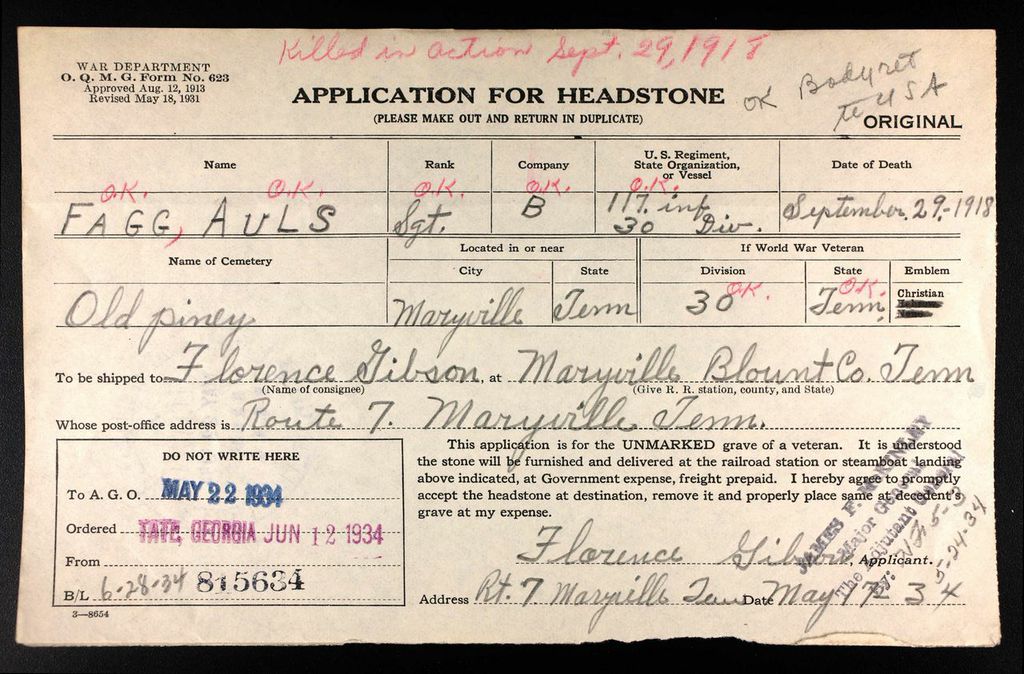 Killed in action Sept. 29, 1918
WAR DEPARTMENT
O. Q. M. G. Form No. 623
Approved Aug. 12, 1913
Revised May 18, 1931
APPLICATION FOR HEADSTONE
(PLEASE MAKE OUT AND RETURN IN DUPLICATE)
OK Body ret
to USA
ORIGINAL
Name Rank Company U. S. Regiment, State Organization, or Vessel Date of Death
O.K. O.K. O.K. O.K. O.K.
FAGG, AULS Sgt. B 117. inf 30 Div. September. 29.-1918
Name of Cemetery Located in or near If World War Veteran
City State Division State Emblem
O.K. O.K.
Old piney Maryville Tenn 30 Tenn. Christian
Hebrew
None
To be shipped to Florence Gibson, at Maryville Blount Co. Tenn
(Name of consignee) (Give R. R. station, county, and State)
Whose post-office address is Route 7. Maryville Tenn.
DO NOT WRITE HERE
To A. G. O. MAY 22 1934
Ordered TATE, GEORGIA JUN 12 1934
From
B/L 6-28-34 815634
3—8654
This application is for the UNMARKED grave of a veteran. It is understood
the stone will be furnished and delivered at the railroad station or steamboat landing
above indicated, at Government expense, freight prepaid. I hereby agree to promptly
accept the headstone at destination, remove it and properly place same at decedent's
grave at my expense.
JAMES F. McKINLEY
Major General
The Adjutant General
By:
5-24-34
Florence Gibson, Applicant.
Address Rt. 7 Maryville Tenn Date May 17 34